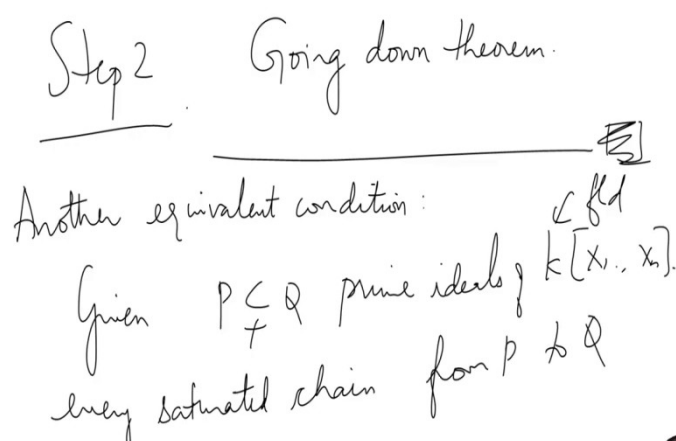 Step 2 Going down theorem.
Another equivalent condition:
↙ fld
Given P ⊊ Q prime ideals of k[X₁.., Xₙ].
every saturated chain from P to Q